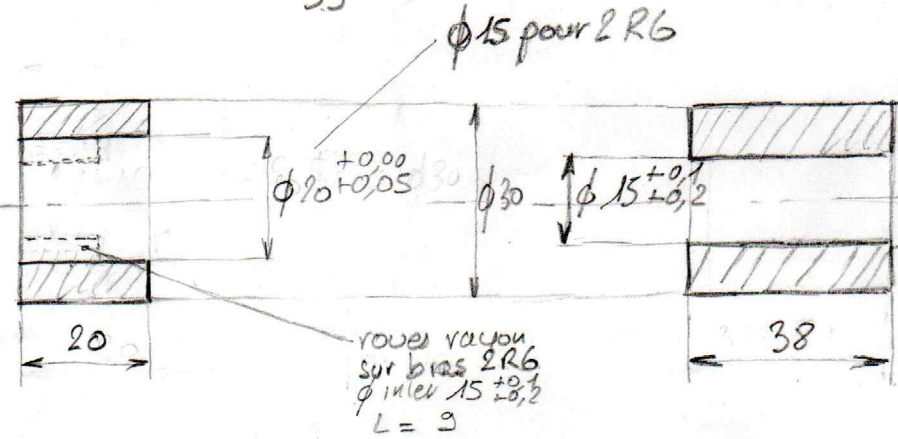 ϕ 15 pour 2 R6
ϕ 20 +0,00 +0,05
ϕ 30
ϕ 15 +0,1 +0,2
20
38
roues rayon
sur bras 2R6
ϕ inter 15 +0,1 +0,2
L = 9